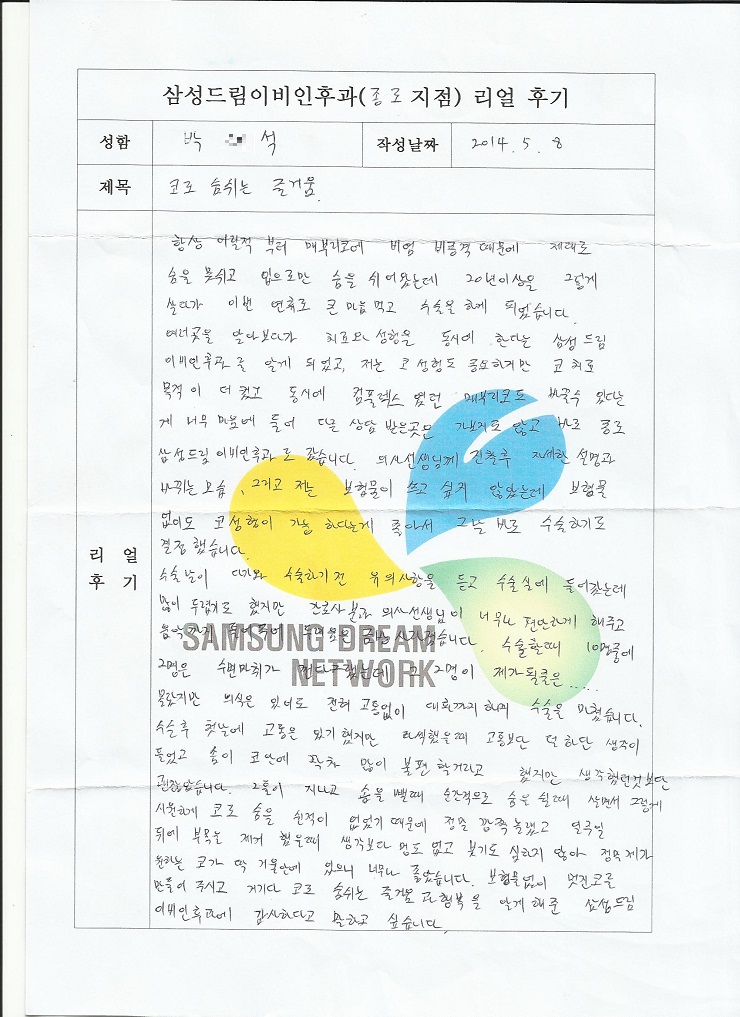 삼성드림이비인후과(종로 지점) 리얼 후기
성함 박 석 작성날짜 2014. 5. 8
제목 코로 숨쉬는 즐거움.
항상 어릴적 부터 매부리코에 비염 비중격 때문에 제대로
숨을 못쉬고 입으로만 숨을 쉬어왔는데 20년이상을 그렇게
살다가 이번 연휴로 큰 마음 먹고 수술을 하게 되었습니다.
여러곳을 알아보다가 치료와 성형을 동시에 한다는 삼성드림
이비인후과를 알게 되었고, 저는 코 성형도 중요하지만 코 치료
목적이 더 컸고 동시에 컴플렉스 였던 매부리코도 바꿀수 있다는
게 너무 마음에 들어 다른 상담 받은곳은 가보지도 않고 바로 종로
삼성드림 이비인후과로 갔습니다. 의사선생님께 진찰후 자세한 설명과
바뀌는 모습, 그리고 저는 보험물이 쓰고 싶지 않았는데 보형물
없이도 코성형이 가능 하다는게 좋아서 그날 바로 수술하기로
결정했습니다.
리 얼
후 기
수술날이 다가와 수술하기전 유의사항을 듣고 수술실에 들어갔는데
많이 두렵기도 했지만 간호사분과 의사선생님이 너무나 편안하게 해주고
음악까지 틀어주어 두려움은 금방 사라졌습니다. 수술할때 10명중에
2명은 수면마취가 안된다고 했는데 그 2명이 제가될줄은.....
몰랐지만 의식은 있어도 전혀 고통없이 대화까지 하며 수술을 마쳤습니다.
수술후 첫날에 고통은 있기 했지만 각오했을때 고통보단 덜 하단 생각이
들었고 솜이 코안에 꽉차 많이 불편 할거라고 했지만 생각했던것보단
괜찮았습니다. 2틀이 지나고 솜을 뺄때 순간적으로 숨을 쉴때 살면서 그렇게
시원하게 코로 숨을 쉰적이 없었기 때문에 정말 깜짝 놀랬고 일주일
뒤에 부목을 제거 했을때 생각보다 멍도 없고 붓기도 심하지 않아 정말 제가
원하는 코가 딱 거울안에 있으니 너무나 좋았습니다. 보형물없이 멋진코를
만들어 주시고 거기다 코로 숨쉬는 즐거움과 행복을 알게 해준 삼성드림
이비인후과에 감사하다고 말하고 싶습니다.
SAMSUNG DREAM
NETWORK